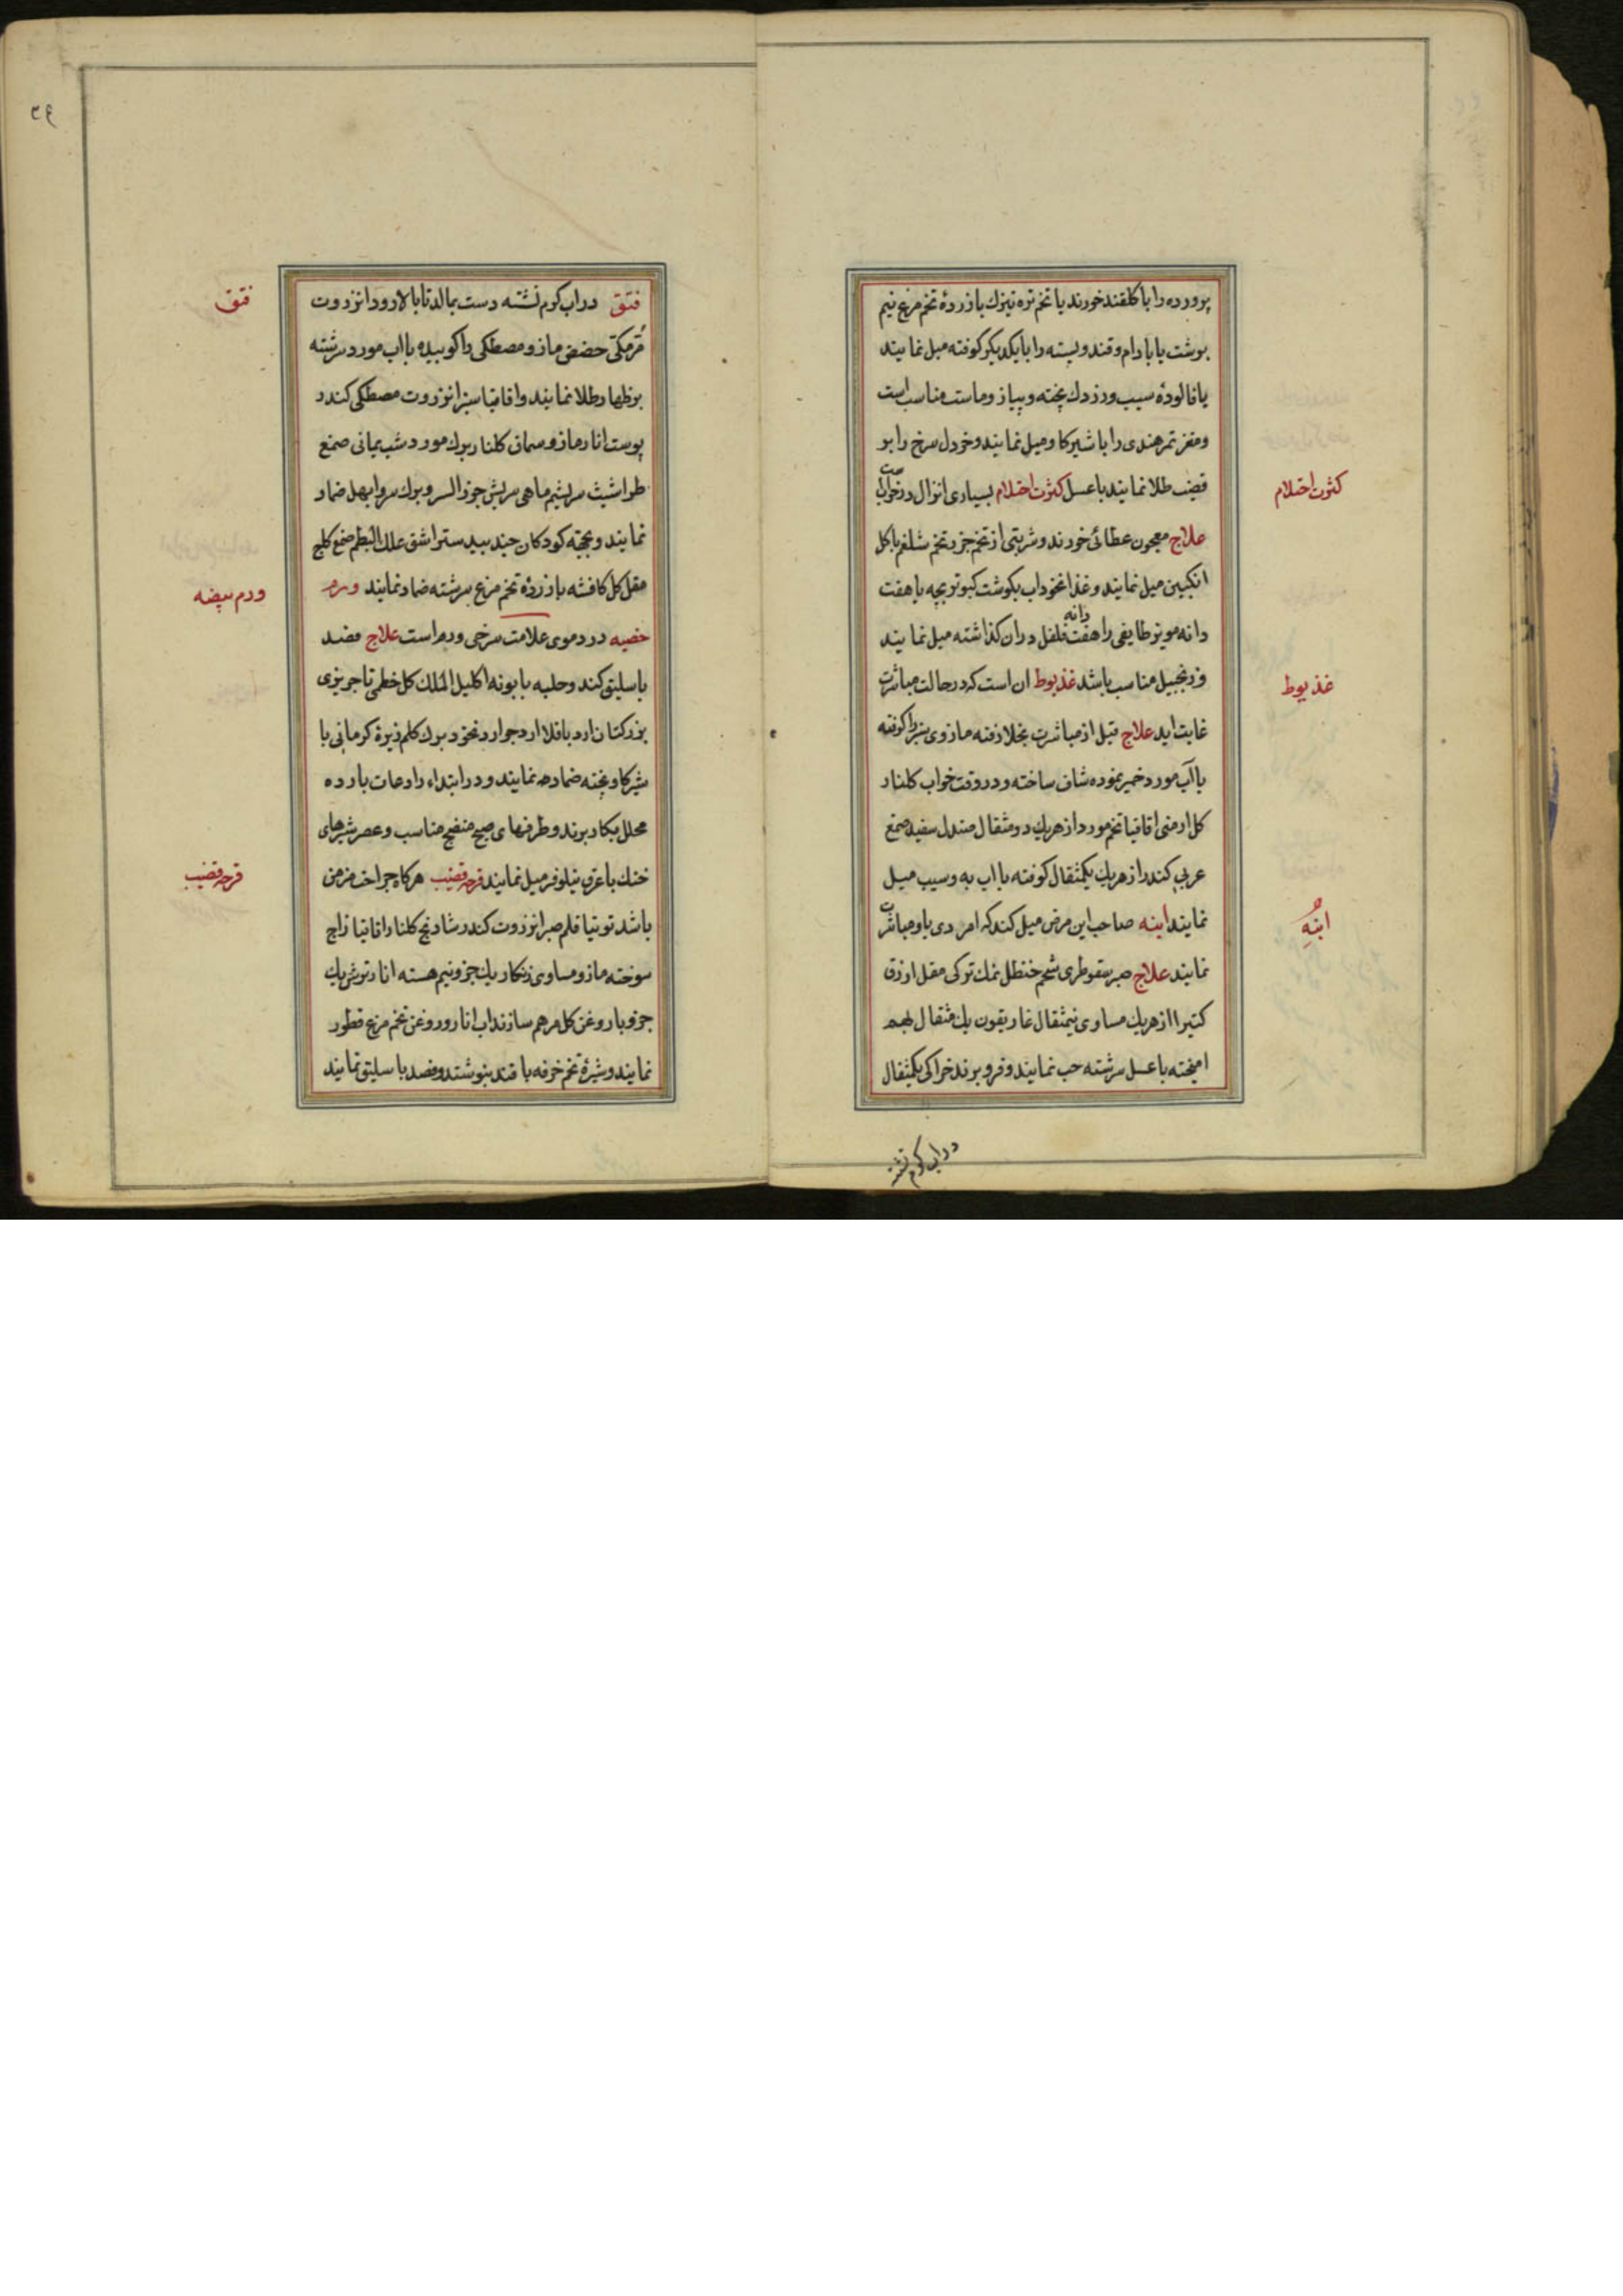 پرورده را با کلقند خورند یا تخم تره تیزك با زردهٔ تخم مرغ نیم
برشت یا بادام و قند و پسته را با یکدیکر کوفته میل نمایند
یا فالودهٔ سیب و زردك پخته و پیاز و ماست مناسب است
و مغز تمر هندی را با شیر کاو میل نمایند و خردل سرخ را بر
قضیب طلا نمایند با عسل کثرت احتلام بسیاری انزال در خواب
کثرت احتلام
علاج معجون عطائی خورند و شربتی از تخم جزر و تخم شلغم با کل
انکبین میل نمایند و غذا نخوداب بکوشت کبوتر بچه با هفت
دانه مویز طایفی را هفت دانه فلفل دران کذاشته میل نمایند
و زنجبیل مناسب باشد غذیوط ان است که در حالت مباشرت
غذیوط
غایت اید علاج قبل از مباشرت بخلا رفته مازوی سبز را کوفته
با آب مورد خمیر نموده شاف ساخته و در وقت خواب کلنار
کل ارمنی اقاقیا تخم مورد از هریك دو مثقال صندل سفید صمغ
عربی کندر از هریك یکمثقال کوفته با اب به و سیب میل
نمایند ابنه صاحب این مرض میل کند که امردی با او مباشرت
ابنه
نمایند علاج صبر سقوطری شحم حنظل نمك ترکی مقل ازرق
کتیرا از هریك مساوی نیمثقال غاریقون یك مثقال بهم
امیخته با عسل سرشته حب نمایند و فرو برند خراکی یکمثقال
دراب کرم نشسته
۳۴
فتق دراب کرم نشسته دست بمالد تا بالا رود انزروت
فتق
مُرمکّی حضض مازو مصطکی را کوبیده با اب مورد سرشته
بر ظهار طلا نمایند و اقاقیا سبز انزروت مصطکی کندر
پوست انار مازو سماق کلنار برك مورد شب یمانی صمغ
طراشیث سریشم ماهی سریش جوز السرو برك سرو ابهل ضماد
نمایند و بجهته کودکان جند بیدستر اشق علك البطم صمغ کلج
مقل کل کافشه با زردهٔ تخم مرغ سرشته ضماد نمایند ورم
ورم بیضه
خصیه در دموی علامت سرخی ورم است علاج فصد
باسلیق کند و حلبه بابونه اکلیل الملك کل خطمی تاجریزی
بزر کتان ارد باقلا ارد جو ارد نخود برك کلم زیرهٔ کرمانی با
شیر کاو پخته ضماد نمایند و در ابتداء رادعات بارده
محلل بکار برند و طرفهای صبح منضج مناسب و عصر شیرهای
خنك با عرق نیلوفر میل نمایند قرحه قضیب هرکاه جراحت مزمن
قرحه قضیب
باشد توتیا قلم صبر انزروت کندر شادنج کلنار اقاقیا زاج
سوخته مازو مساوی زنکار یك جزو نیم هسته انار ترش یك
جزو با روغن کل مرهم سازند اب انار و روغن تخم مرغ قطور
نمایند و شیرهٔ تخم خرفه با قند بنوشند و فصد باسلیق نمایند